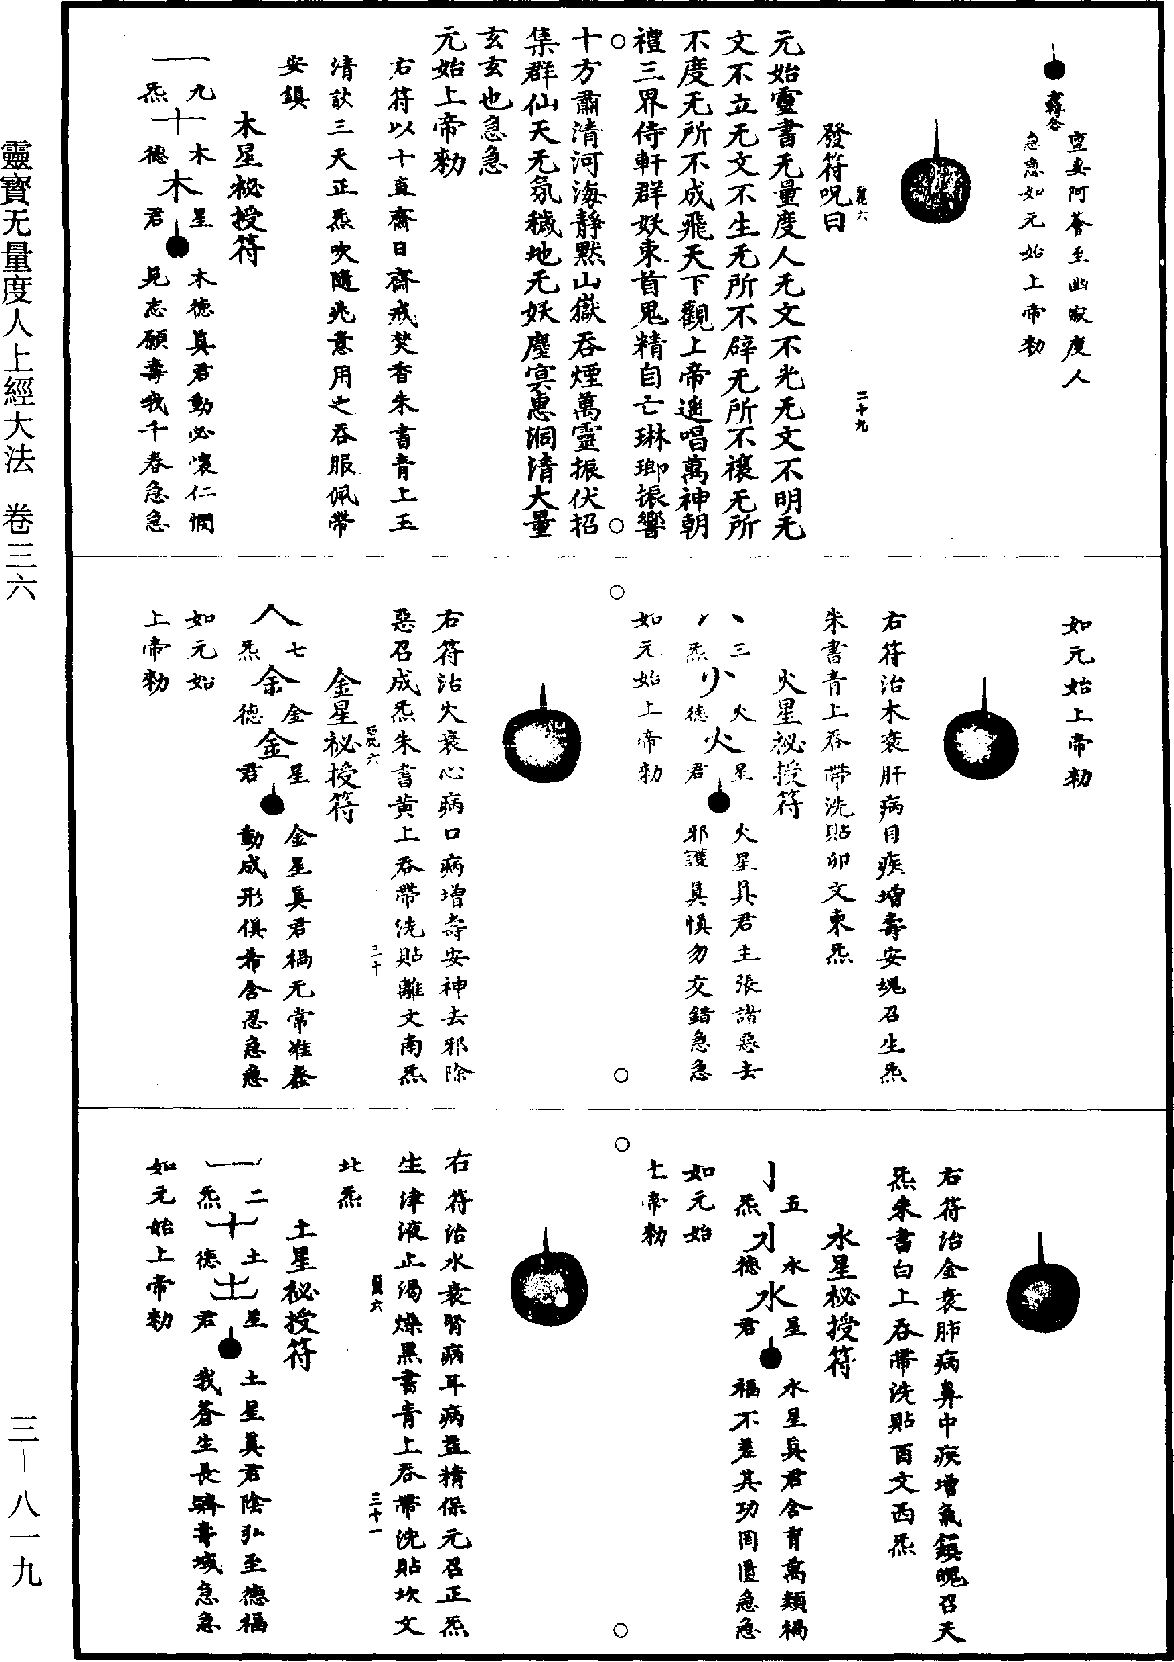 靈寶无量度人上經大法　卷三六
三－八一九
霧谷
空奏阿薈至幽寂度人
急急如元始上帝勑
發符呪曰
元始靈書无量度人无文不光无文不明无
文不立无文不生无所不辟无所不禳无所
不度无所不成飛天下觀上帝遙唱萬神朝
禮三界侍軒群妖束首鬼精自亡琳琅振響
十方肅清河海靜默山嶽吞煙萬靈振伏招
集群仙天无氛穢地无妖塵冥慧洞清大量
玄玄也急急
元始上帝勑
右符以十直齋日齋戒焚香朱書青上玉
清訣三天正炁吹隨兆意用之吞服佩帶
安鎮
木星祕授符
九木星
炁德君
十
木
木德真君動必懷仁憫
見志願壽我千春急急
二十九
如元始上帝勑
右符治木衰肝病目疾增壽安魂召生炁
朱書青上吞帶洗貼卯文東炁
火星祕授符
三火星
炁德君
火
火星真君主張諸惡去
邪護真慎勿交錯急急
如元始上帝勑
右符治火衰心病口病增壽安神去邪除
惡召成炁朱書黃上吞帶洗貼離文南炁
三十
金星祕授符
人
七金星
炁德君
余
金
金星真君禍无常准泰
動成形俱希含忍急急
如元始
上帝勑
右符治金衰肺病鼻中疾增氣鎮魄召天
炁朱書白上吞帶洗貼酉文西炁
水星祕授符
五水星
炁德君
水
水星真君含育萬類禍
福不差其功罔匱急急
如元始
上帝勑
右符治水衰腎病耳病益精保元召正炁
生津液止渴燥黑書青上吞帶洗貼坎文
北炁
三十一
土星祕授符
一
二土星
炁德君
十
土
土星真君陰弘至德福
我蒼生長躋壽域急急
如元始上帝勑